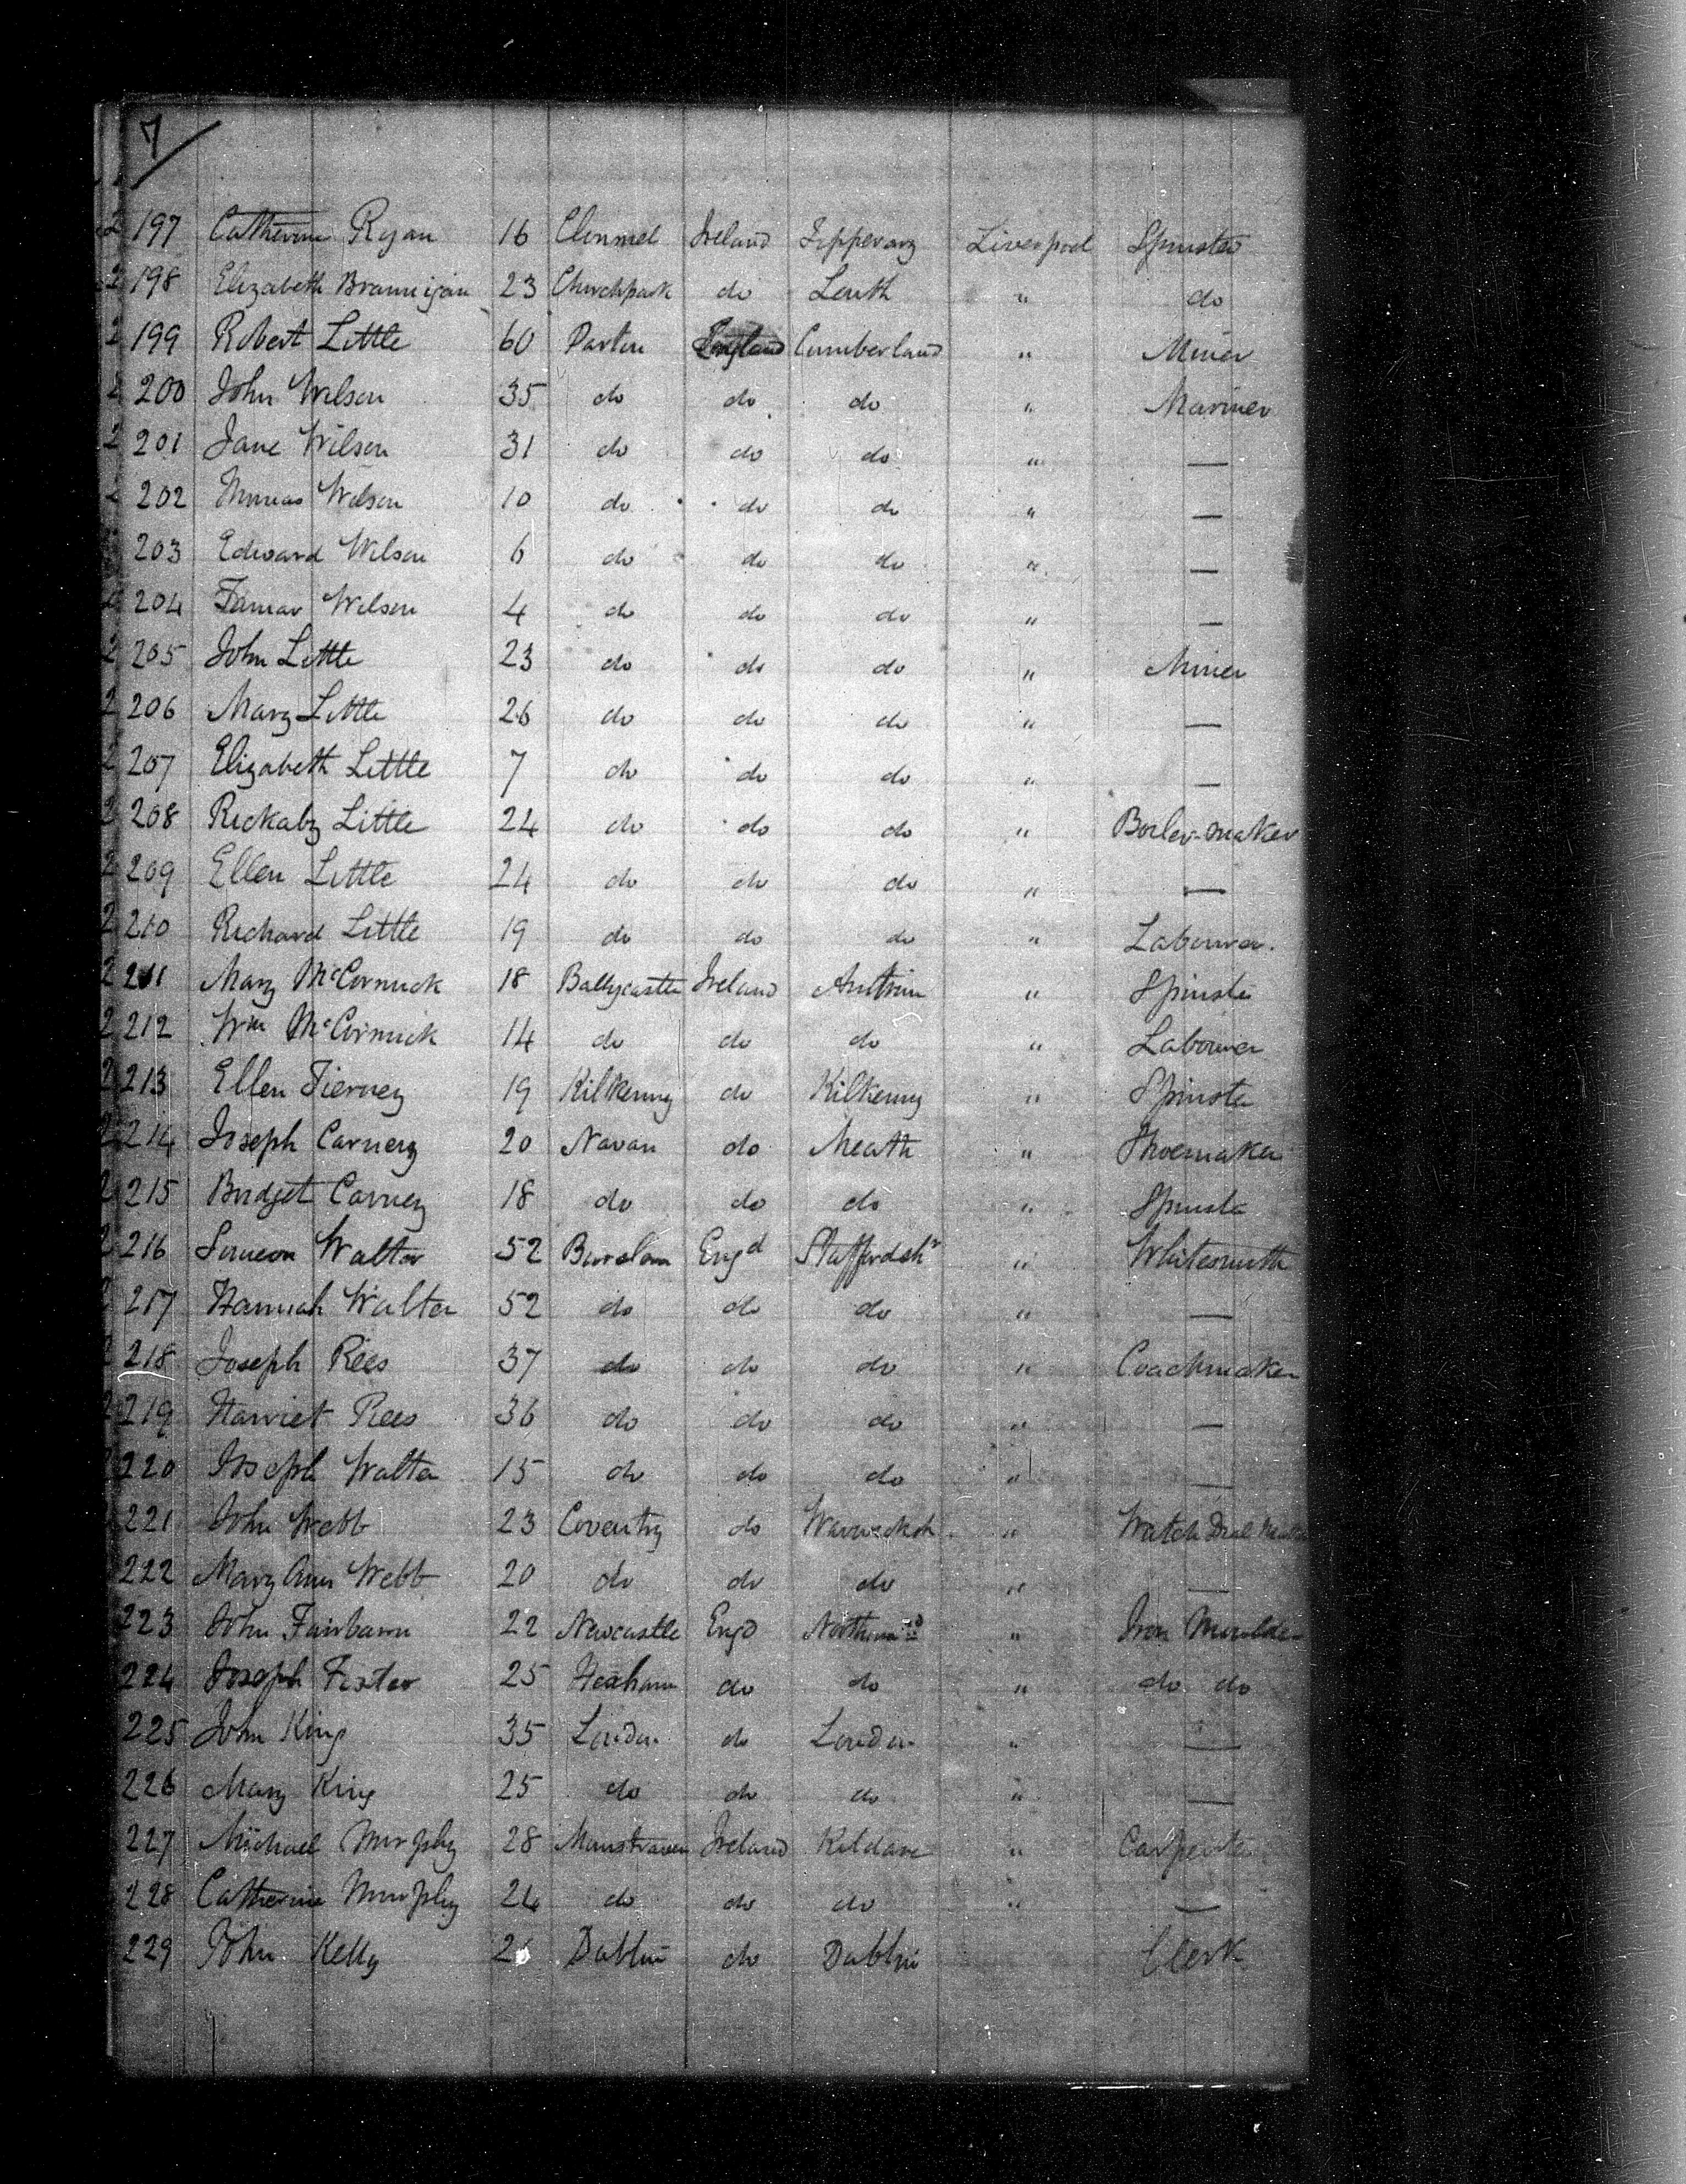 7
197 Catherine Ryan 16 Clonmel Ireland Tipperary Liverpool Spinster
198 Elizabeth Brannigan 23 Churchpark do Louth " do
199 Robert Little 60 Parton England Cumberland " Miner
200 John Wilson 35 do do do " Mariner
201 Jane Wilson 31 do do do " —
202 Thomas Wilson 10 do do do " —
203 Edward Wilson 6 do do do " —
204 Tamar Wilson 4 do do do " —
205 John Little 23 do do do " Miner
206 Mary Little 26 do do do " —
207 Elizabeth Little 7 do do do " —
208 Rickaby Little 24 do do do " Boiler-maker
209 Ellen Little 24 do do do " —
210 Richard Little 19 do do do " Labourer.
211 Mary McCormick 18 Ballycastle Ireland Antrim " Spinster
212 Wm McCormick 14 do do do " Labourer
213 Ellen Tierney 19 Kilkenny do Kilkenny " Spinster
214 Joseph Carney 20 Navan do Meath " Shoemaker
215 Bridget Carney 18 do do do " Spinster
216 Simeon Walter 52 Burslem Engd Staffordshr " Whitesmith
217 Hannah Walter 52 do do do " —
218 Joseph Rees 37 do do do " Coachmaker
219 Harriet Rees 36 do do do " —
220 Joseph Walter 15 do do do " —
221 John Webb 23 Coventry do Warwicksh " Watch Dial
222 Mary Ann Webb 20 do do do " —
223 John Fairbairn 22 Newcastle Engd Northumd " Iron Moulder
224 Joseph 25 Hexham do do " do do
225 John King 35 London do London " —
226 Mary King 25 do do do " —
227 Michael Murphy 28 Ireland Kildare " Carpenter
228 Catherine Murphy 24 do do do " —
229 John Kelly 26 Dublin do Dublin Clerk